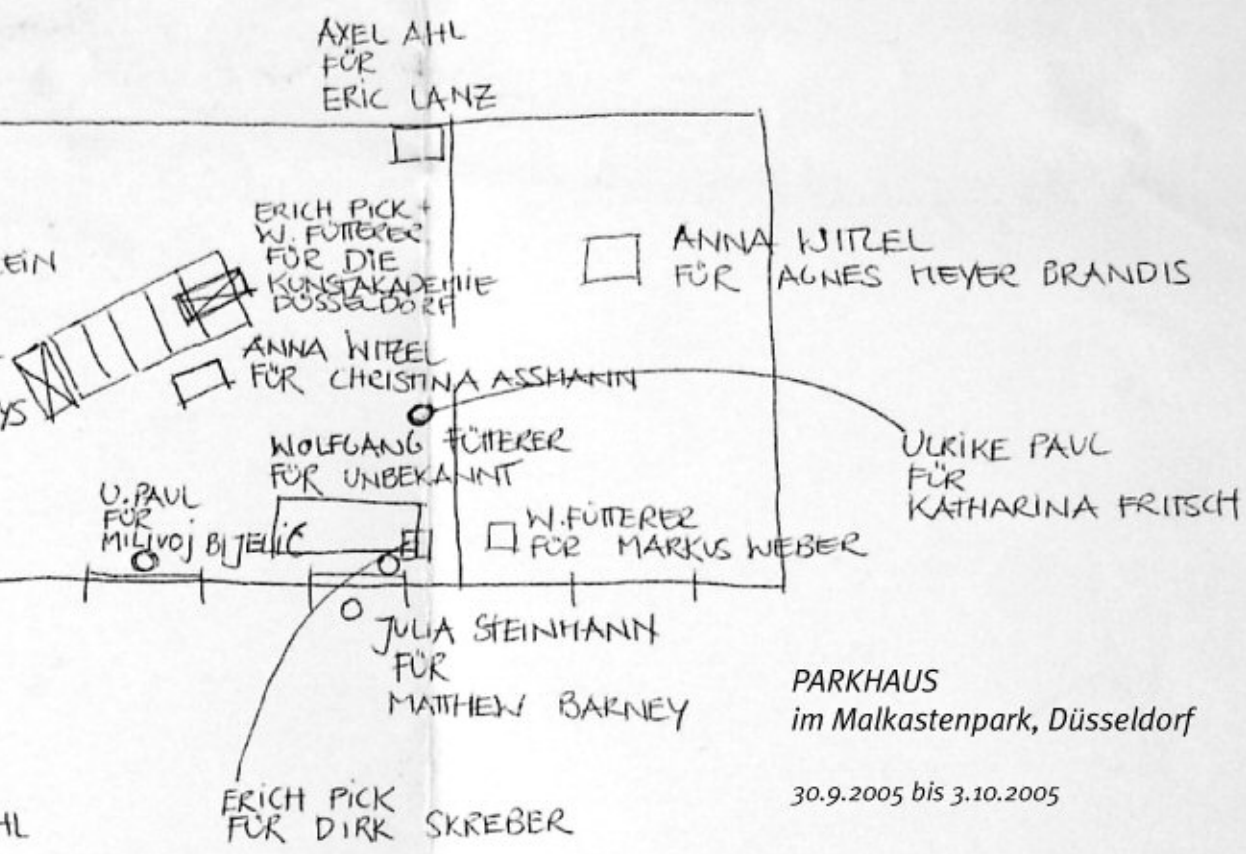 AXEL AHL
FÜR
ERIC LANZ
ERICH PICK +
W. FÜTTERER
FÜR DIE
KUNSTAKADEMIE
DÜSSELDORF
ANNA WITZEL
FÜR AGNES MEYER BRANDIS
LEIN
ANNA WITZEL
FÜR CHRISTINA ASSMANN
YS
WOLFGANG FÜTTERER
FÜR UNBEKANNT
ULRIKE PAUL
FÜR
KATHARINA FRITSCH
U. PAUL
FÜR
MILIVOJ BIJELIĆ
W. FÜTTERER
FÜR MARKUS WEBER
JULIA STEINMANN
FÜR
MATTHEW BARNEY
ERICH PICK
FÜR DIRK SKREBER
HL
PARKHAUS
im Malkastenpark, Düsseldorf
30.9.2005 bis 3.10.2005